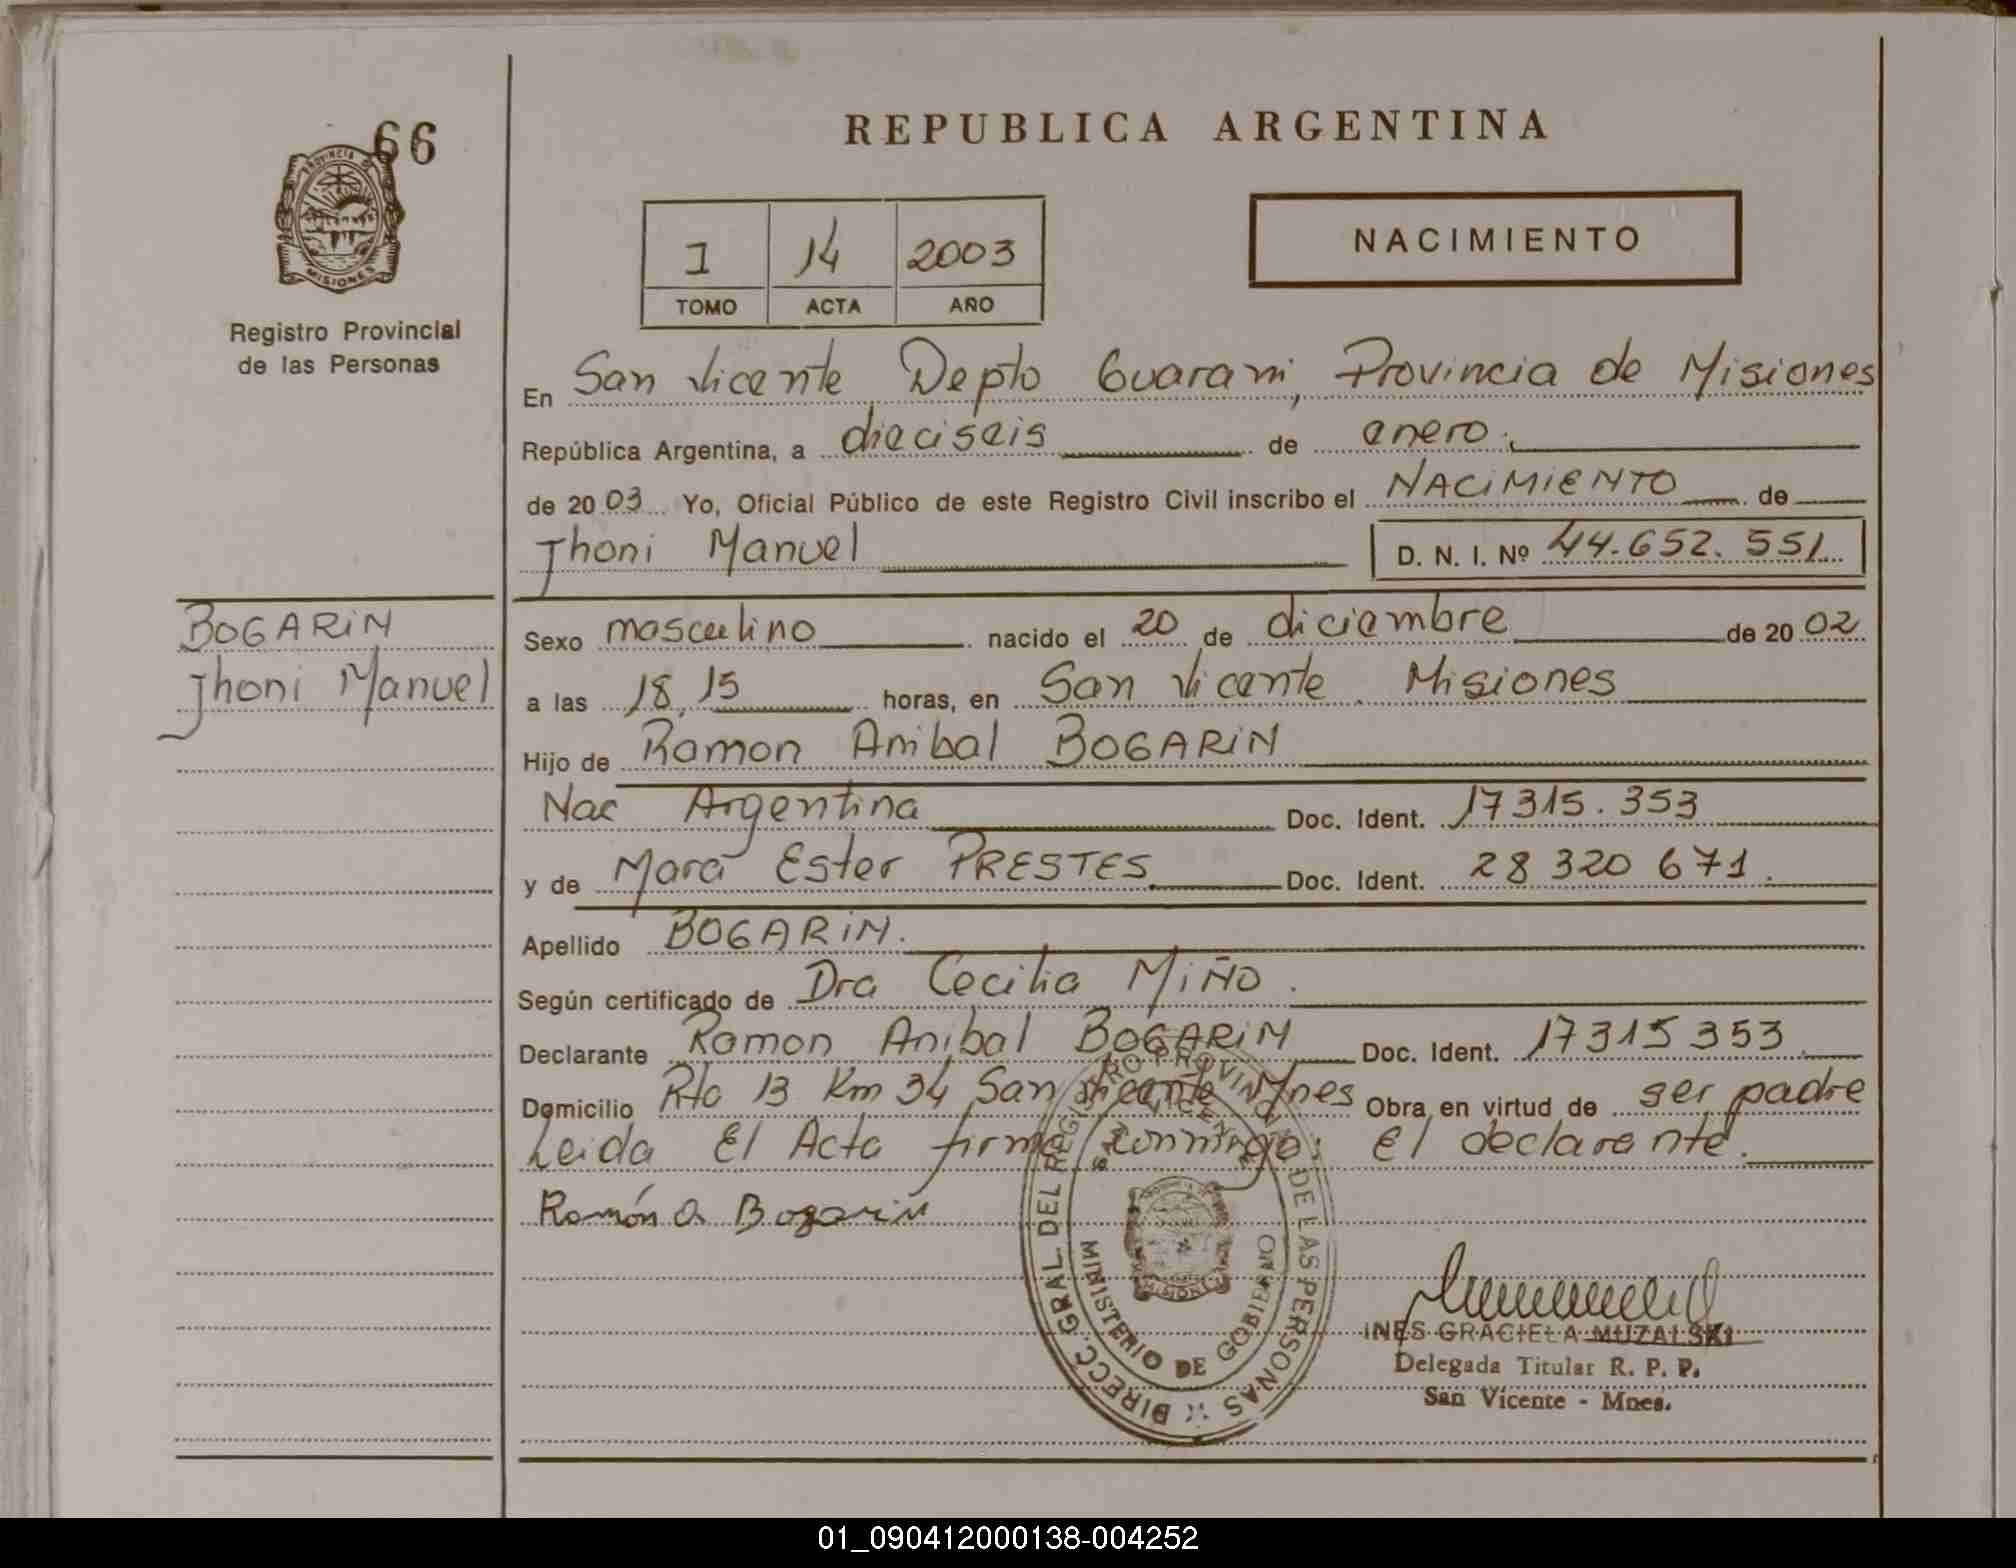 66
PROVINCIA DE
MISIONES
Registro Provincial
de las Personas
REPUBLICA ARGENTINA
I 14 2003
TOMO ACTA AÑO
NACIMIENTO
En San Vicente Depto Guarani, Provincia de Misiones
República Argentina, a dieciseis de enero
de 2003 Yo, Oficial Público de este Registro Civil inscribo el NACIMIENTO de
Jhoni Manuel D. N. I. Nº 44.652.551
BOGARIN
Jhoni Manuel
Sexo masculino nacido el 20 de diciembre de 2002
a las 18,15 horas, en San Vicente Misiones
Hijo de Ramon Anibal BOGARIN
Nac Argentina Doc. Ident. 17315.353
y de Mara Ester PRESTES Doc. Ident. 28 320 671.
Apellido BOGARIN.
Según certificado de Dra Cecilia MIÑO.
Declarante Ramon Anibal BOGARIN Doc. Ident. 17315353
Domicilio Rta 13 Km 34 San Vicente Mnes Obra en virtud de ser padre
Leida El Acta firma conmigo El declarante.
Ramón A Bogarin
DIRECC. GRAL. DEL REGISTRO PROVINCIAL DE LAS PERSONAS
SAN VICENTE
MISIONES
MINISTERIO DE GOBIERNO
INES GRACIELA MUZALSKI
Delegada Titular R. P. P.
San Vicente - Mnes.
01_090412000138-004252